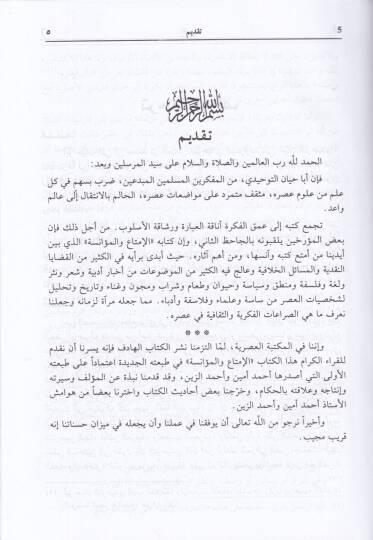 5 تقديم ٥
بسم الله الرحمن الرحيم
تقديم
الحمد لله رب العالمين والصلاة والسلام على سيد المرسلين وبعد:
فإن أبا حيان التوحيدي، من المفكرين المسلمين المبدعين، ضرب بسهم في كل
علم من علوم عصره، مثقف متمرد على مواضعات عصره، الحالم بالانتقال إلى عالم
واعد.
تجمع كتبه إلى عمق الفكرة أناقة العبارة ورشاقة الأسلوب. من أجل ذلك فإن
بعض المؤرخين يلقبونه بالجاحظ الثاني، وإن كتابه «الإمتاع والمؤانسة» الذي بين
أيدينا من أمتع كتبه وآنسها، ومن أهم آثاره. حيث أبدى برأيه في الكثير من القضايا
النقدية والمسائل الخلافية وعالج فيه الكثير من الموضوعات من أخبار أدبية وشعر ونثر
ولغة وفلسفة ومنطق وسياسة وحيوان وطعام وشراب ومجون وغناء وتاريخ وتحليل
لشخصيات العصر من ساسة وعلماء وفلاسفة وأدباء. مما جعله مرآة لزمانه وجعلنا
نعرف ما هي الصراعات الفكرية والثقافية في عصره.
* * *
وإننا في المكتبة العصرية، لمّا التزمنا نشر الكتاب الهادف فإنه يسرنا أن نقدم
للقراء الكرام هذا الكتاب «الإمتاع والمؤانسة» في طبعته الجديدة اعتماداً على طبعته
الأولى التي أصدرها أحمد أمين وأحمد الزين، وقد قدمنا نبذة عن المؤلف وسيرته
وإنتاجه وعلاقته بالحكام، وخرّجنا بعض أحاديث الكتاب واخترنا بعضاً من هوامش
الأستاذ أحمد أمين وأحمد الزين.
وأخيراً نرجو من الله تعالى أن يوفقنا في عملنا وأن يجعله في ميزان حسناتنا إنه
قريب مجيب.